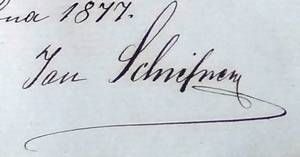 dna 1877.
Jan Schiefner